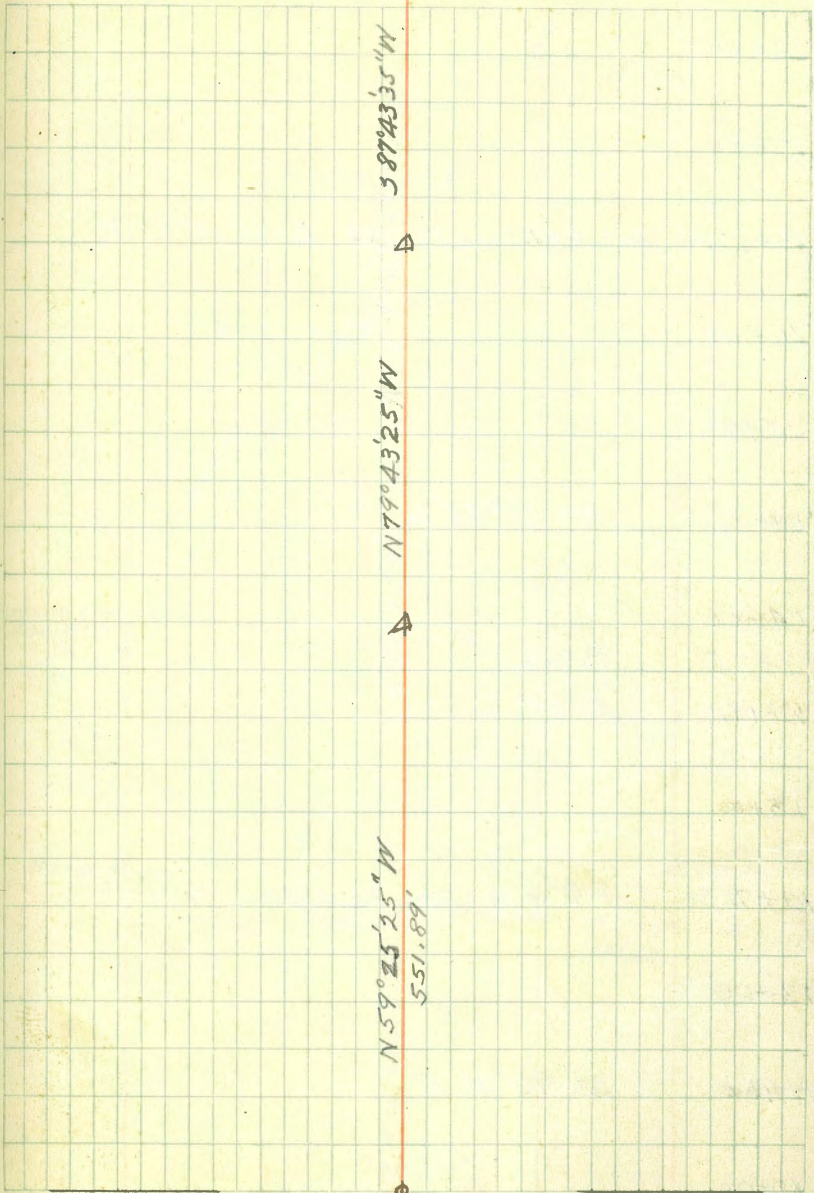 S87°43'35"W
N79°43'25"W
N59°25'25"W
551.89'